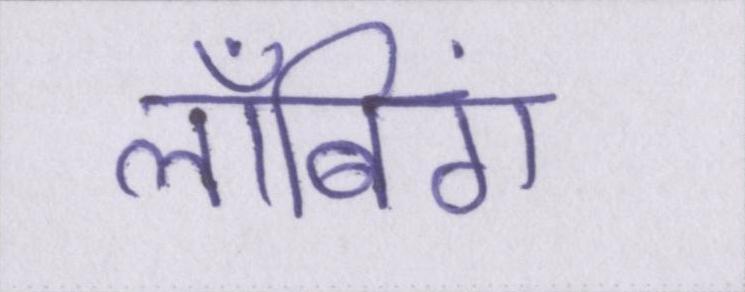 लाँबिंग